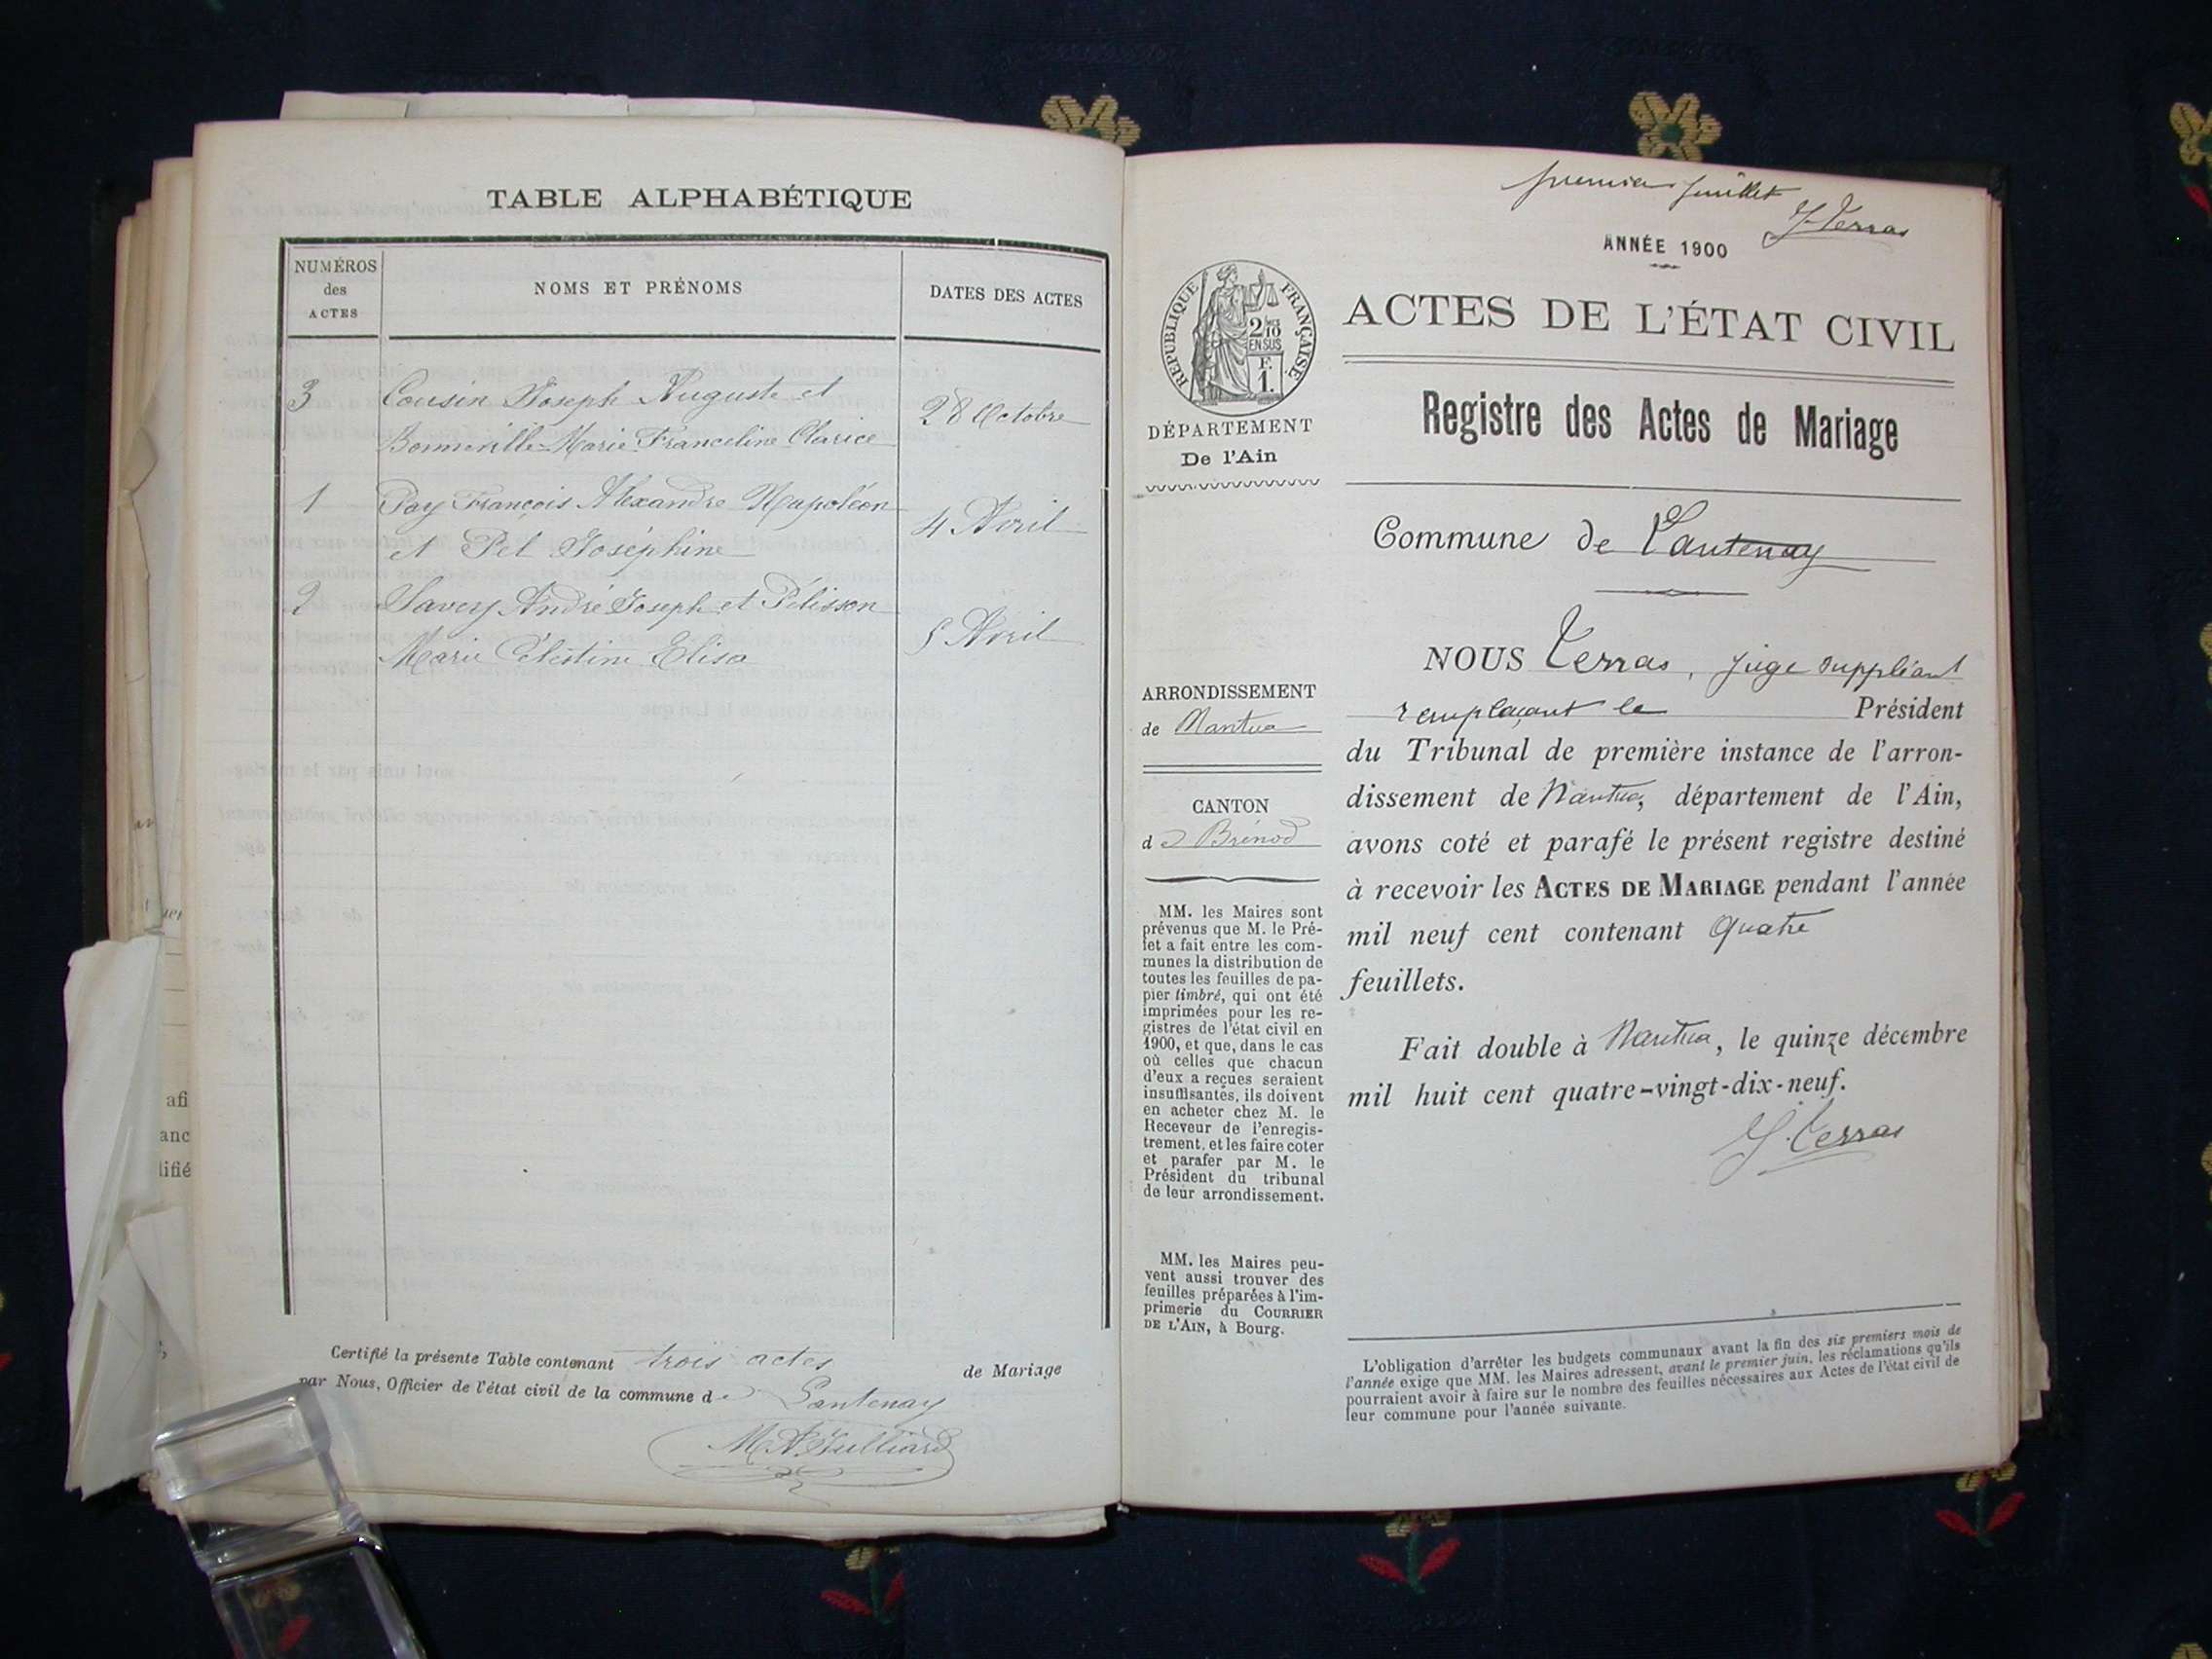 TABLE ALPHABÉTIQUE
NUMÉROS
des
ACTES
NOMS ET PRÉNOMS
DATES DES ACTES
3 Cousin Joseph Auguste et
Bonneville Marie Franceline Clarice
28 Octobre
1 Poy François Alexandre Napoléon
et Pel Joséphine
4 Avril
2 Savey André Joseph et Pélisson
Marie Célestine Elisa
5 Avril
Certifié la présente Table contenant trois actes de Mariage
par Nous, Officier de l'état civil de la commune de Lantenay
M A Julliard
premier feuillet
J. Terras
ANNÉE 1900
RÉPUBLIQUE FRANÇAISE
2/10
EN SUS
F.
1.
ACTES DE L'ÉTAT CIVIL
DÉPARTEMENT
De l'Ain
Registre des Actes de Mariage
Commune de Lantenay
ARRONDISSEMENT
de Nantua
CANTON
de Brénod
MM. les Maires sont
prévenus que M. le Pré-
fet a fait entre les com-
munes la distribution de
toutes les feuilles de pa-
pier timbré, qui ont été
imprimées pour les re-
gistres de l'état civil en
1900, et que, dans le cas
où celles que chacun
d'eux a reçues seraient
insuffisantes, ils doivent
en acheter chez M. le
Receveur de l'enregis-
trement, et les faire coter
et parafer par M. le
Président du tribunal
de leur arrondissement.
MM. les Maires peu-
vent aussi trouver des
feuilles préparées à l'im-
primerie du COURRIER
DE L'AIN, à Bourg.
NOUS Terras, juge suppléant
remplaçant le Président
du Tribunal de première instance de l'arron-
dissement de Nantua, département de l'Ain,
avons coté et parafé le présent registre destiné
à recevoir les ACTES DE MARIAGE pendant l'année
mil neuf cent contenant quatre
feuillets.
Fait double à Nantua, le quinze décembre
mil huit cent quatre-vingt-dix-neuf.
J. Terras
L'obligation d'arrêter les budgets communaux avant la fin des six premiers mois de
l'année exige que MM. les Maires adressent, avant le premier juin, les réclamations qu'ils
pourraient avoir à faire sur le nombre des feuilles nécessaires aux Actes de l'état civil de
leur commune pour l'année suivante.